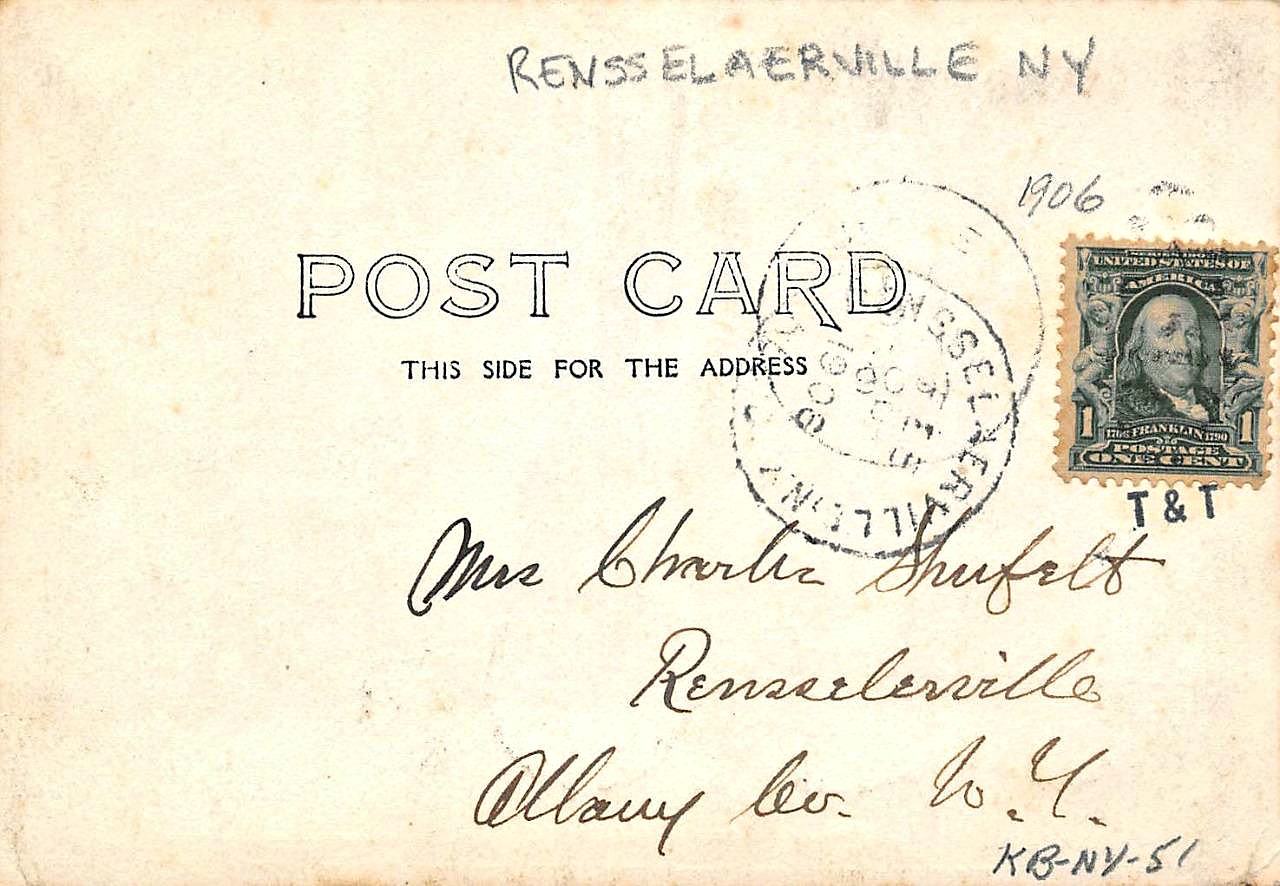 RENSSELAERVILLE NY
1906
POST CARD
THIS SIDE FOR THE ADDRESS
RENSSELAERVILLE N.Y.
1906
UNITED STATES OF
AMERICA
1 1706 FRANKLIN 1790 1
POSTAGE
ONE CENT
T & T
Mrs Charlie Shufelt
Rensselerville
Albany Co. N.Y.
KB-NY-51